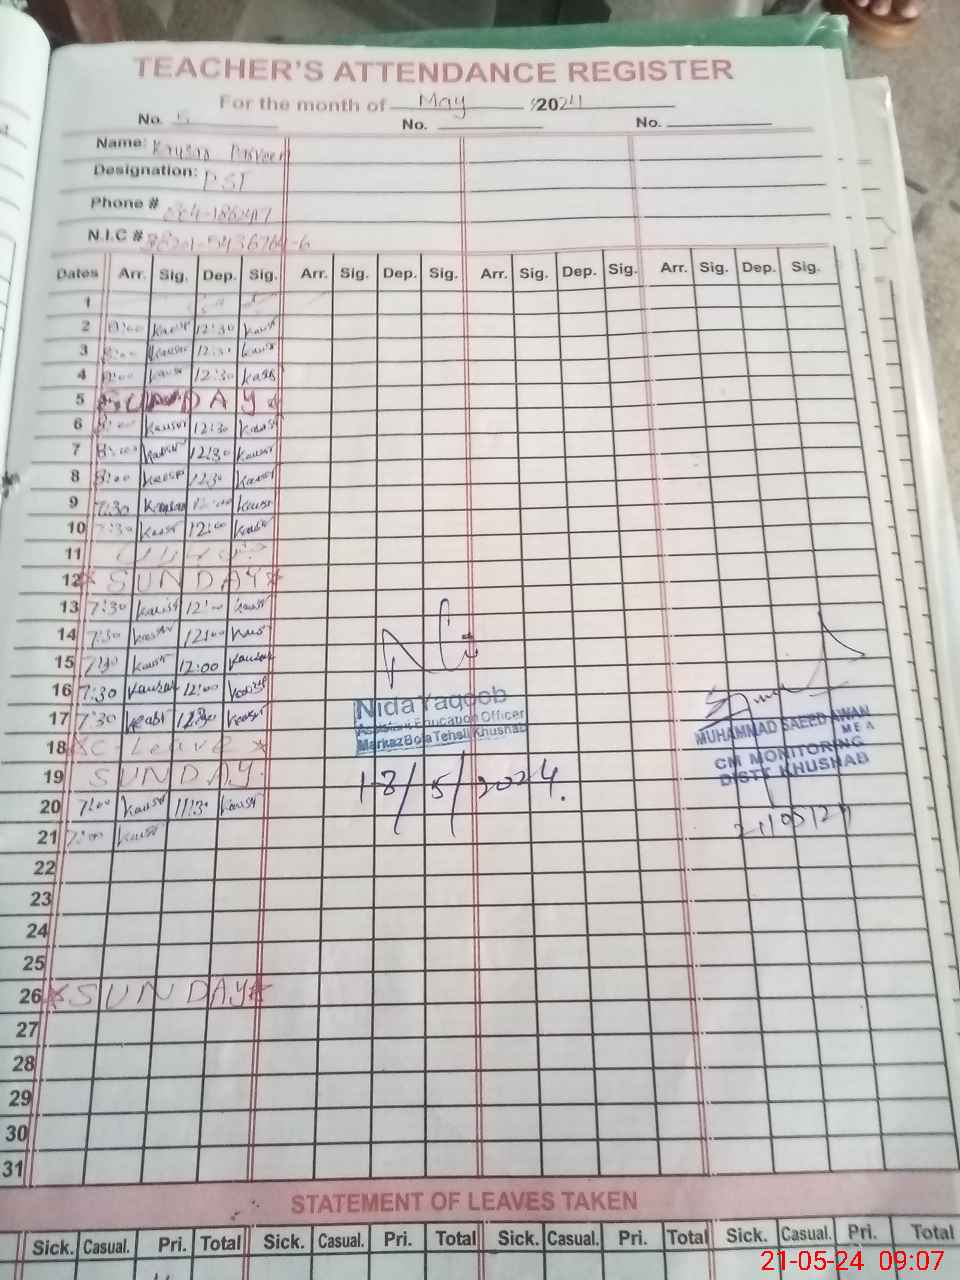 TEACHER'S ATTENDANCE REGISTER
For the month of May 2024
No. 5 No. No.
Name: Kausar Parveen
Designation: PST
Phone #
N.I.C #
Dates Arr. Sig. Dep. Sig. Arr. Sig. Dep. Sig. Arr. Sig. Dep. Sig. Arr. Sig. Dep. Sig.
1
2 8:00 Kausr 12:30 Kausr
3 8:00 Kausar 12:30 Kausr
4 8:00 Kausr 12:30 Kausr
5 SUNDAY *
6 8:00 Kausar 12:30 Kausar
7 8:00 Kausar 12:30 Kausar
8 8:00 Kausar 12:30 Kausar
9 7:30 Kausar 12:00 Kausar
10 7:30 Kausr 12:00 Kausr
11
12 * SUNDAY *
13 7:30 Kausr 12:00 Kausr
14 7:30 Kausar 12:00 Kausr
15 7:30 Kausr 12:00 Kausar
16 7:30 Kausar 12:00 Kausar
17 7:30 Kausr Kausr
18 * C-Leave *
19 SUNDAY.
20 7:00 Kausr 11:30 Kausr
21 7:00 Kausr
22
23
24
25
26 * SUNDAY *
27
28
29
30
31
Nida Yaqoob
Assistant Education Officer
Markaz Bola Tehsil Khushab
18/5/2024.
MUHAMMAD SAEED AWAN
MEA
CM MONITORING
DISTT KHUSHAB
21/05/24
STATEMENT OF LEAVES TAKEN
Sick. Casual. Pri. Total Sick. Casual. Pri. Total Sick. Casual. Pri. Total Sick. Casual. Pri. Total
21-05-24 09:07